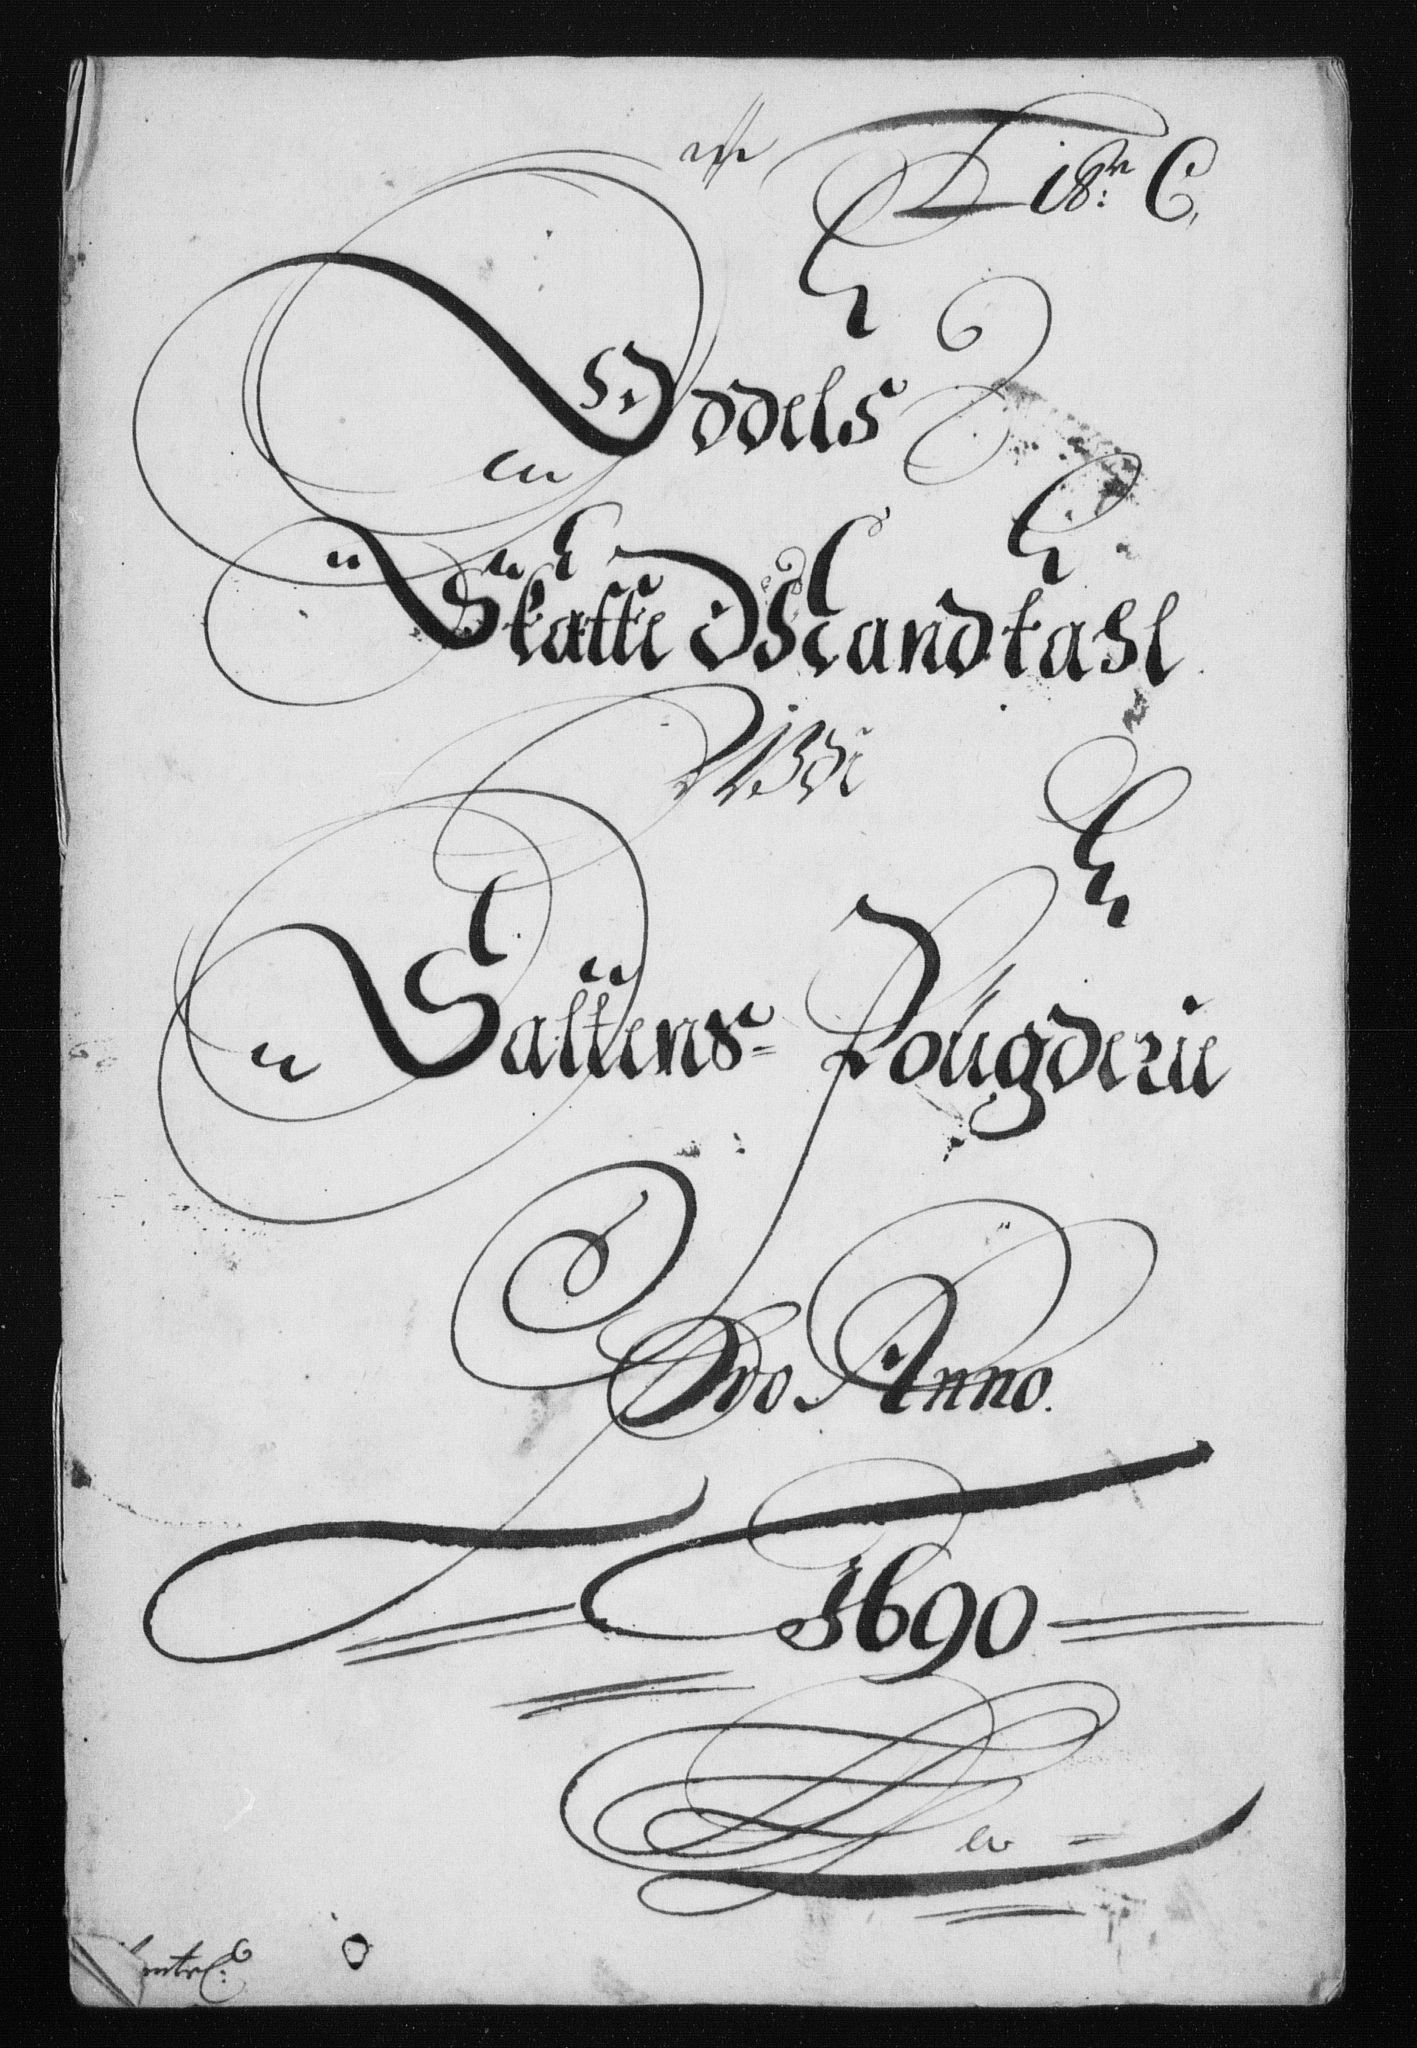 18: C,
Oddels
Skatte Mandtahl
Vdi
Saltens= Fougderie
Pro Anno.
1690